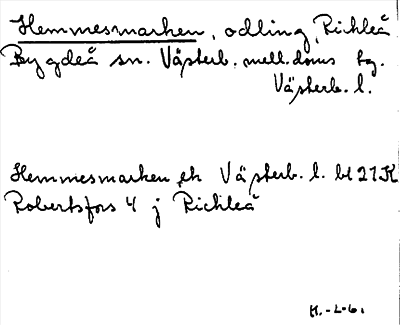 Hemmesmarken, odling, Rickleå
Bygdeå sn. Västerb. mell. doms tg.
Västerb. l.
Hemmesmarken, ek Västerb. l. bl 21K
Robertsfors 4 j Rickleå
H.-L-6.